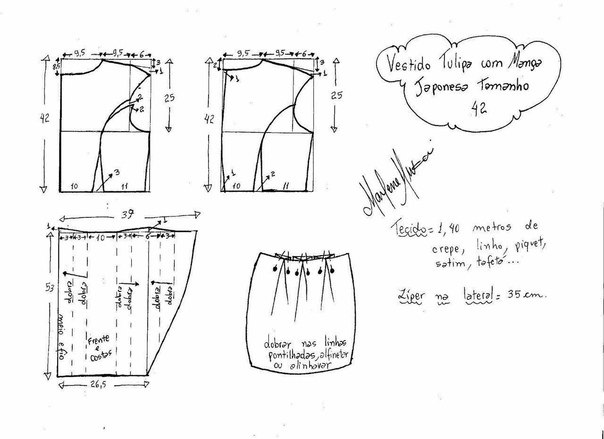 Vestido Tulipa com Manga
Japonesa Tamanho
42
9,5 9,5 6
8,5
3
1
42
25
2
2
3
10 11
9,5 9,5 6
2
3
1
42
25
1
2
10 11
Marlene Mukai
Tecido = 1,40 metros de
crepe, linho, piquet,
satim, tafetá...
Zíper na lateral = 35 cm.
37
1
3 3 10 3 6 3
53
dobra
dobra
dobra
dobra
dobra
dobra
meio e fio
Frente
e
Costas
26,5
dobrar nas linhas
pontilhadas, alfinetar
ou alinhavar